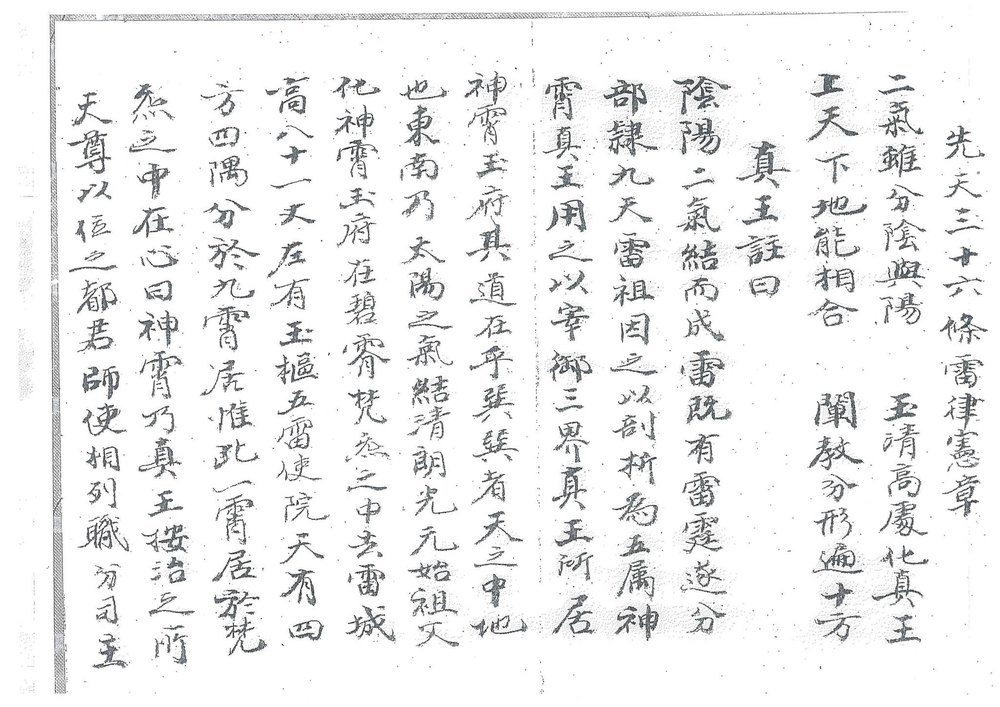 先天三十六條雷律憲章
二氣雖分陰與陽　玉清高處化真王
上天下地能相合　闡教分形遍十方
真王註曰
陰陽二氣結而成雷既有雷霆遂分
部隸九天雷祖因之以剖折為五属神
霄真王用之以宰御三界真王所居
神霄玉府其道在乎巽巽者天之中地
也東南乃太陽之氣結清朗光元始祖父
化神霄玉府在碧霄梵炁之中去雷城
高八十一丈左有玉樞五雷使院天有四
方四隅分於九霄居惟此一霄居於梵
炁之中在心曰神霄乃真王按治之所
天尊以伍之都君師使相列職分司主